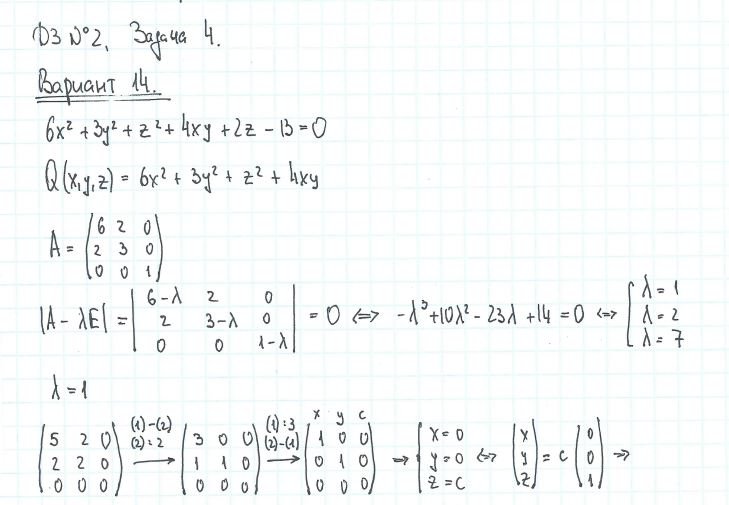 ДЗ №2, Задача 4.
Вариант 14.
6x² + 3y² + z² + 4xy + 2z - 13 = 0
Q(x,y,z) = 6x² + 3y² + z² + 4xy
A = (6 2 0
2 3 0
0 0 1)
|A - λE| = |6-λ 2 0
2 3-λ 0
0 0 1-λ| = 0 ⇔ -λ³ + 10λ² - 23λ + 14 = 0 ⇔ [λ = 1
λ = 2
λ = 7
λ = 1
(5 2 0
2 2 0
0 0 0) (1)-(2)
(2):2 → (3 0 0
1 1 0
0 0 0) (1):3
(2)-(1) → x y c
(1 0 0
0 1 0
0 0 0) ⇒ {x = 0
y = 0
z = c ⇔ (x
y
z) = c (0
0
1) ⇒